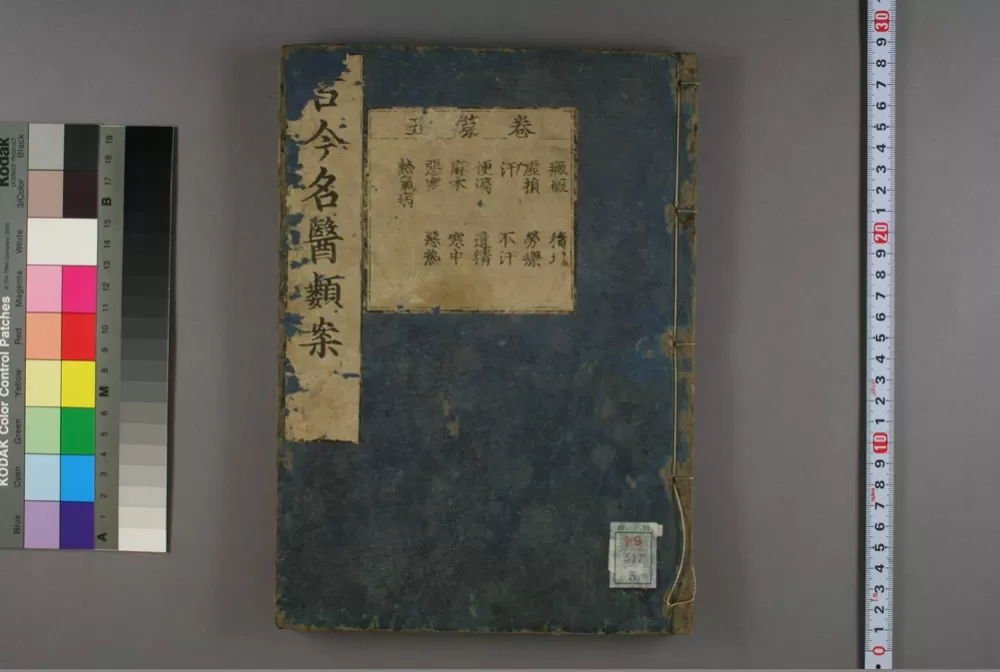 古今名醫類案
卷第五
癥瘕 積
虛損 勞瘵
汗 不汗
便濁 遺精
麻木 寒中
惡寒 惡熱
熱氣病
517
5
Kodak
KODAK Color Control Patches
Blue Cyan Green Yellow Red Magenta White 3/Color Black
A 1 2 3 4 5 6 M 8 9 10 11 12 13 14 15 B 17 18 19
0 1 2 3 4 5 6 7 8 9 10 1 2 3 4 5 6 7 8 9 20 1 2 3 4 5 6 7 8 9 30